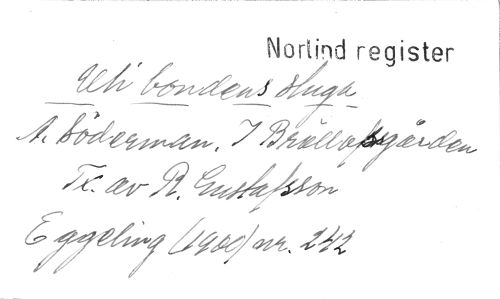 Norlind register
Uti bondens stuga
A. Söderman. I Bröllopsgården
Tx. av R. Gustafsson
Eggeling (1900) nr. 242